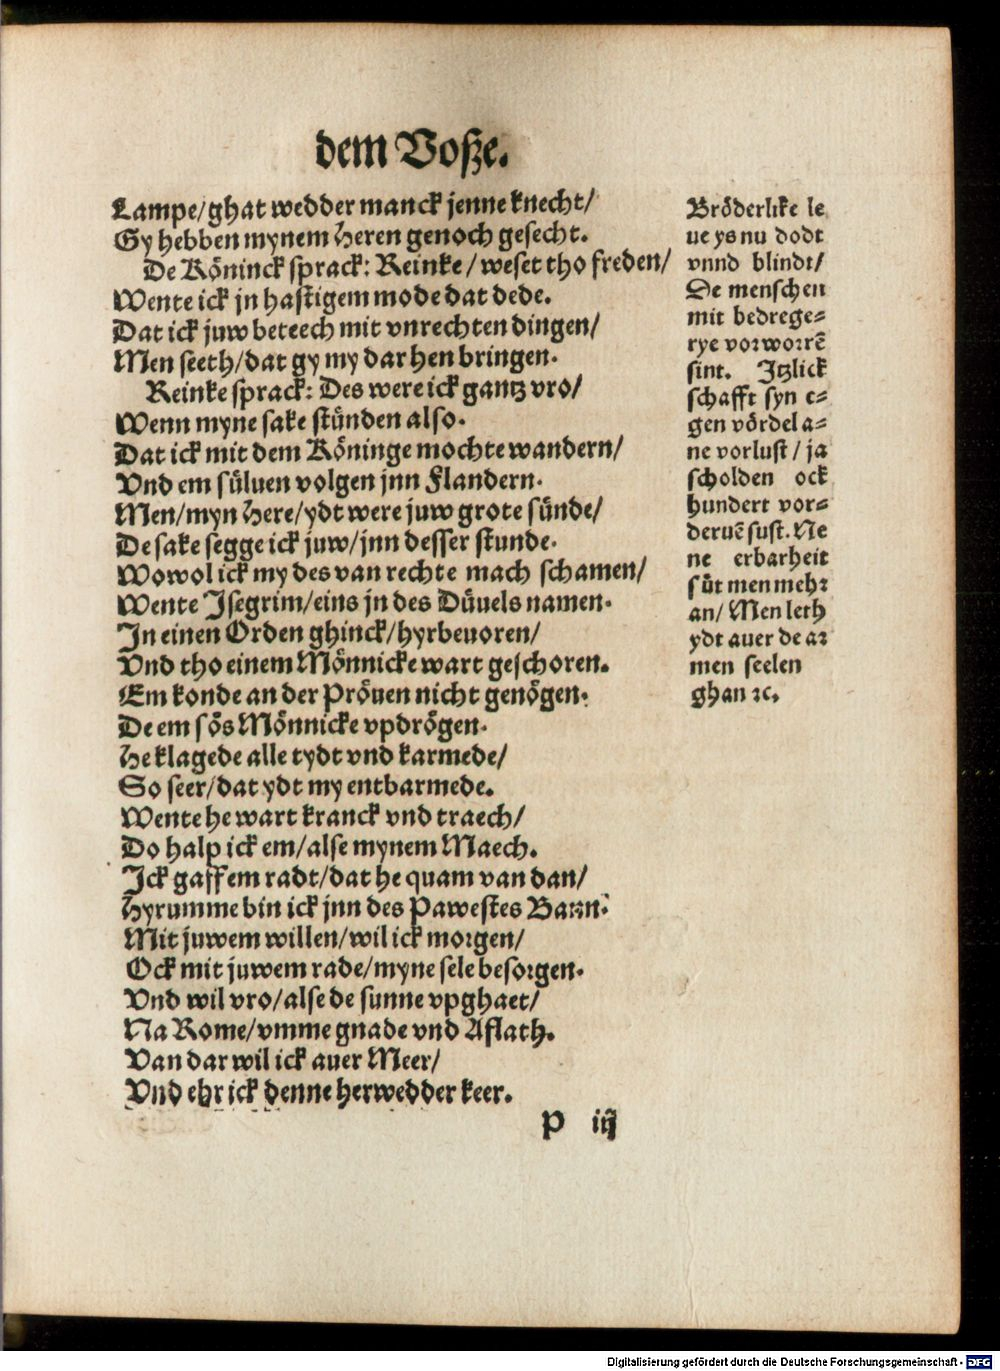 dem Voßze.
Lampe/ghat wedder manck jenne knecht/
Gy hebben mynem Heren genoch gesecht.
De Köninck sprack: Reinke/weset tho freden/
Wente ick jn hastigem mode dat dede.
Dat ick juw beteech mit vnrechten dingen/
Men seeth/dat gy my dar hen bringen.
Reinke sprack: Des were ick gantz vro/
Wenn myne sake stünden also.
Dat ick mit dem Köninge mochte wandern/
Vnd em süluen volgen jnn Flandern.
Men/myn Here/ydt were juw grote sünde/
De sake segge ick juw/jnn desser stunde.
Wowol ick my des van rechte mach schamen/
Wente Jsegrim/eins jn des Düuels namen.
Jn einen Orden ghinck/hyrbeuoren/
Vnd tho einem Mönnicke wart geschoren.
Em konde an der Pröuen nicht genögen.
De em sös Mönnicke vpdrögen.
He klagede alle tydt vnd karmede/
So seer/dat ydt my entbarmede.
Wente he wart kranck vnd traech/
Do halp ick em/alse mynem Maech.
Jck gaff em radt/dat he quam van dan/
Hyrumme bin ick jnn des Pawestes Bann.
Mit juwem willen/wil ick morgen/
Ock mit juwem rade/myne sele besorgen.
Vnd wil vro/alse de sunne vpghaet/
Na Rome/vmme gnade vnd Aflath.
Van dar wil ick auer Meer/
Vnd ehr ick denne herwedder keer.
P iij
Bröderlike le
ue ys nu dodt
vnnd blindt/
De menschen
mit bedrege⸗
rye vorworrē
sint. Jtzlick
schafft syn e⸗
gen vördel a⸗
ne vorlust/ja
scholden ock
hundert vor⸗
deruē sust. Ne
ne erbarheit
süt men mehr
an/Men leth
ydt auer de ar
men seelen
ghan ꝛc.
Digitalisierung gefördert durch die Deutsche Forschungsgemeinschaft - DFG